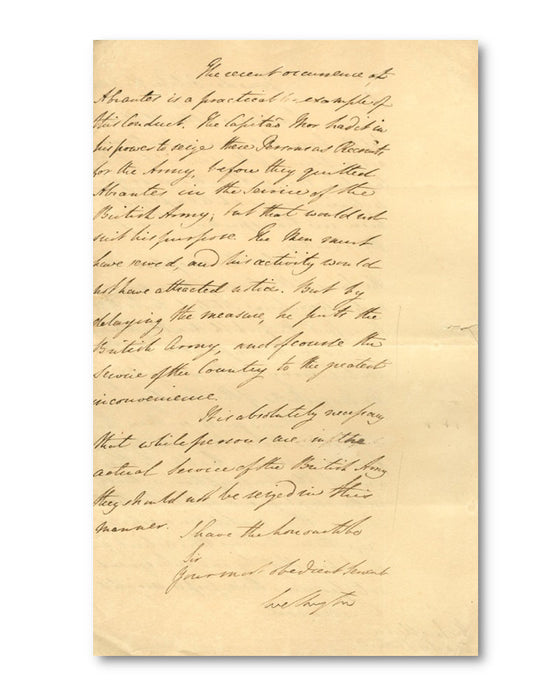 The recent occurrence of
Abrantes is a practical example of
this Conduct. The Capitaõ Mor had it in
his power to seize these Persons as Recruits
for the Army, before they quitted
Abrantes in the service of the
British Army; but that would not
suit his purpose. The Men must
have served, and his activity would
not have attracted notice. But by
delaying the measure, he puts the
British Army, and of course the
Service of the Country to the greatest
inconvenience.
It is absolutely necessary
that while persons are in the
actual service of the British Army
they should not be seized in this
manner.
I have the honour to be
Sir
Your most obedient servant
Wellington